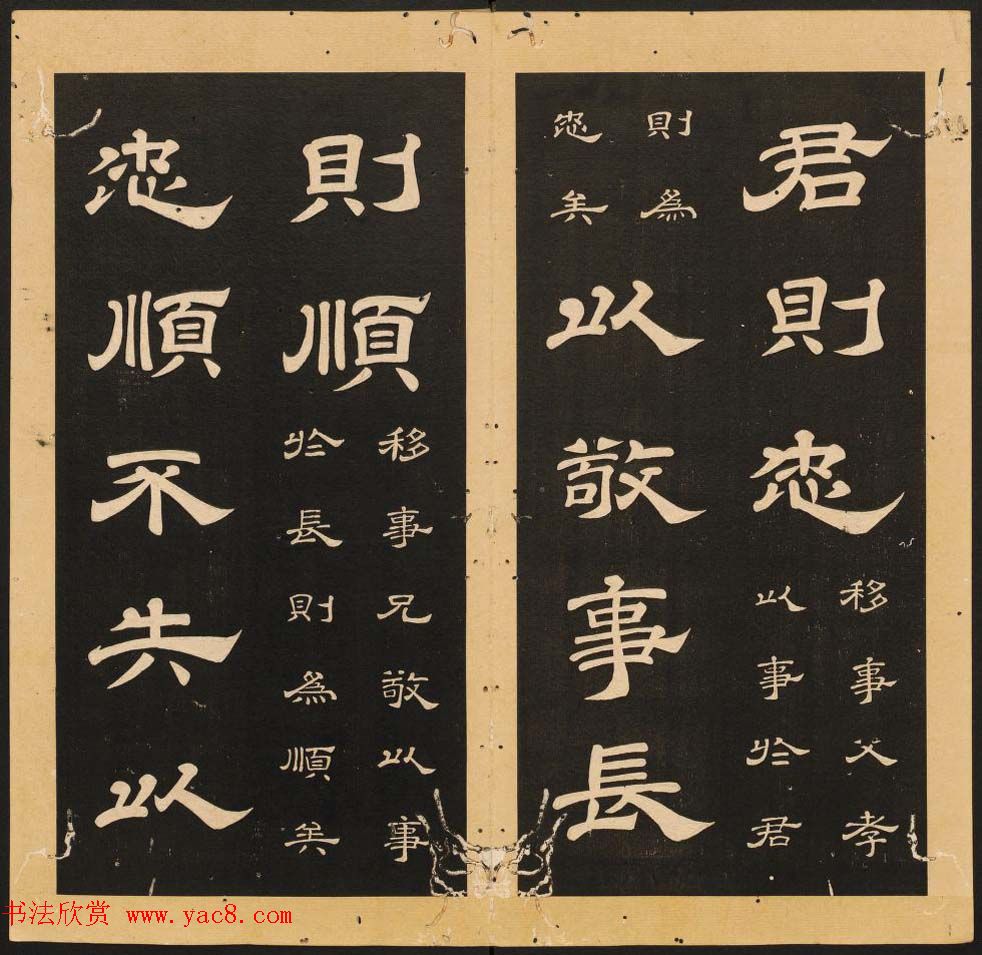 君則忠
移事父孝
以事於君
則為
忠矣
以敬事長
則順
移事兄敬以事
於長則為順矣
忠順不失以
书法欣赏 www.yac8.com